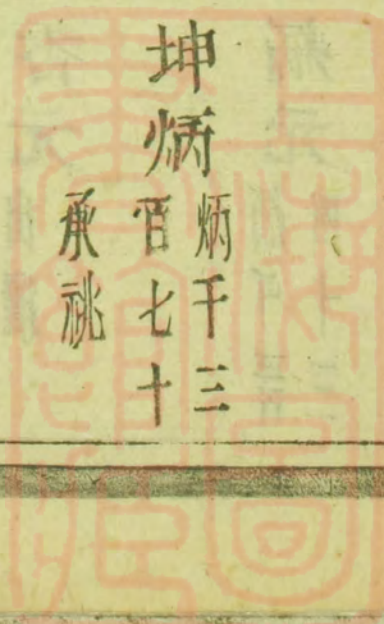 坤炳
炳千三
百七十
承祧